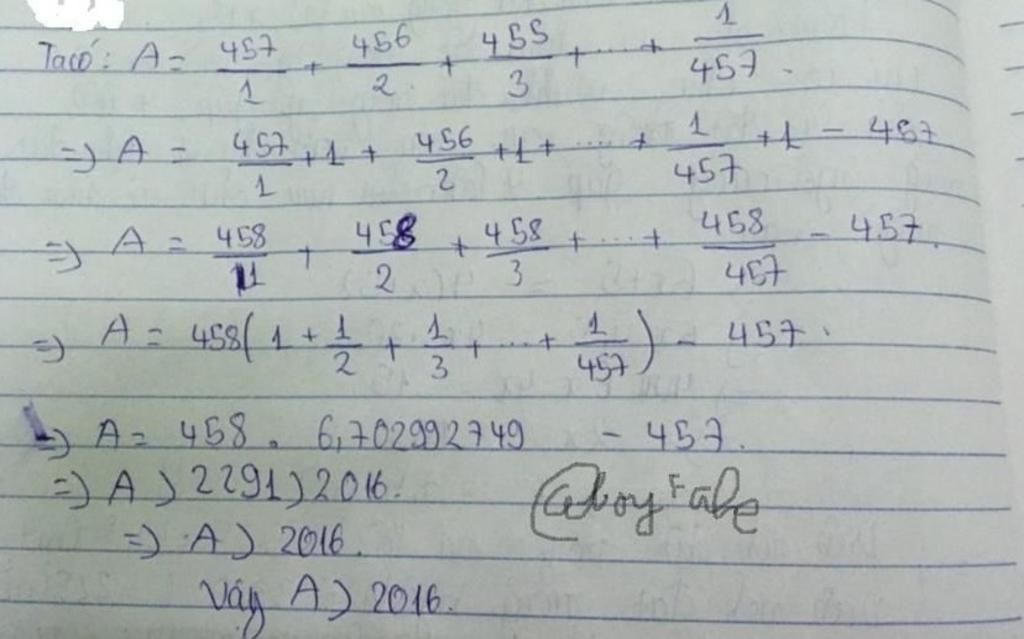 Ta có: A = 457/1 + 456/2 + 455/3 + ... + 1/457.
=> A = 457/1 + 1 + 456/2 + 1 + ... + 1/457 + 1 - 457
=> A = 458/1 + 458/2 + 458/3 + ... + 458/457 - 457.
=> A = 458(1 + 1/2 + 1/3 + ... + 1/457) - 457.
=> A = 458 . 6,702992749 - 457.
=> A > 2291 > 2016.
=> A > 2016.
Vậy A > 2016.